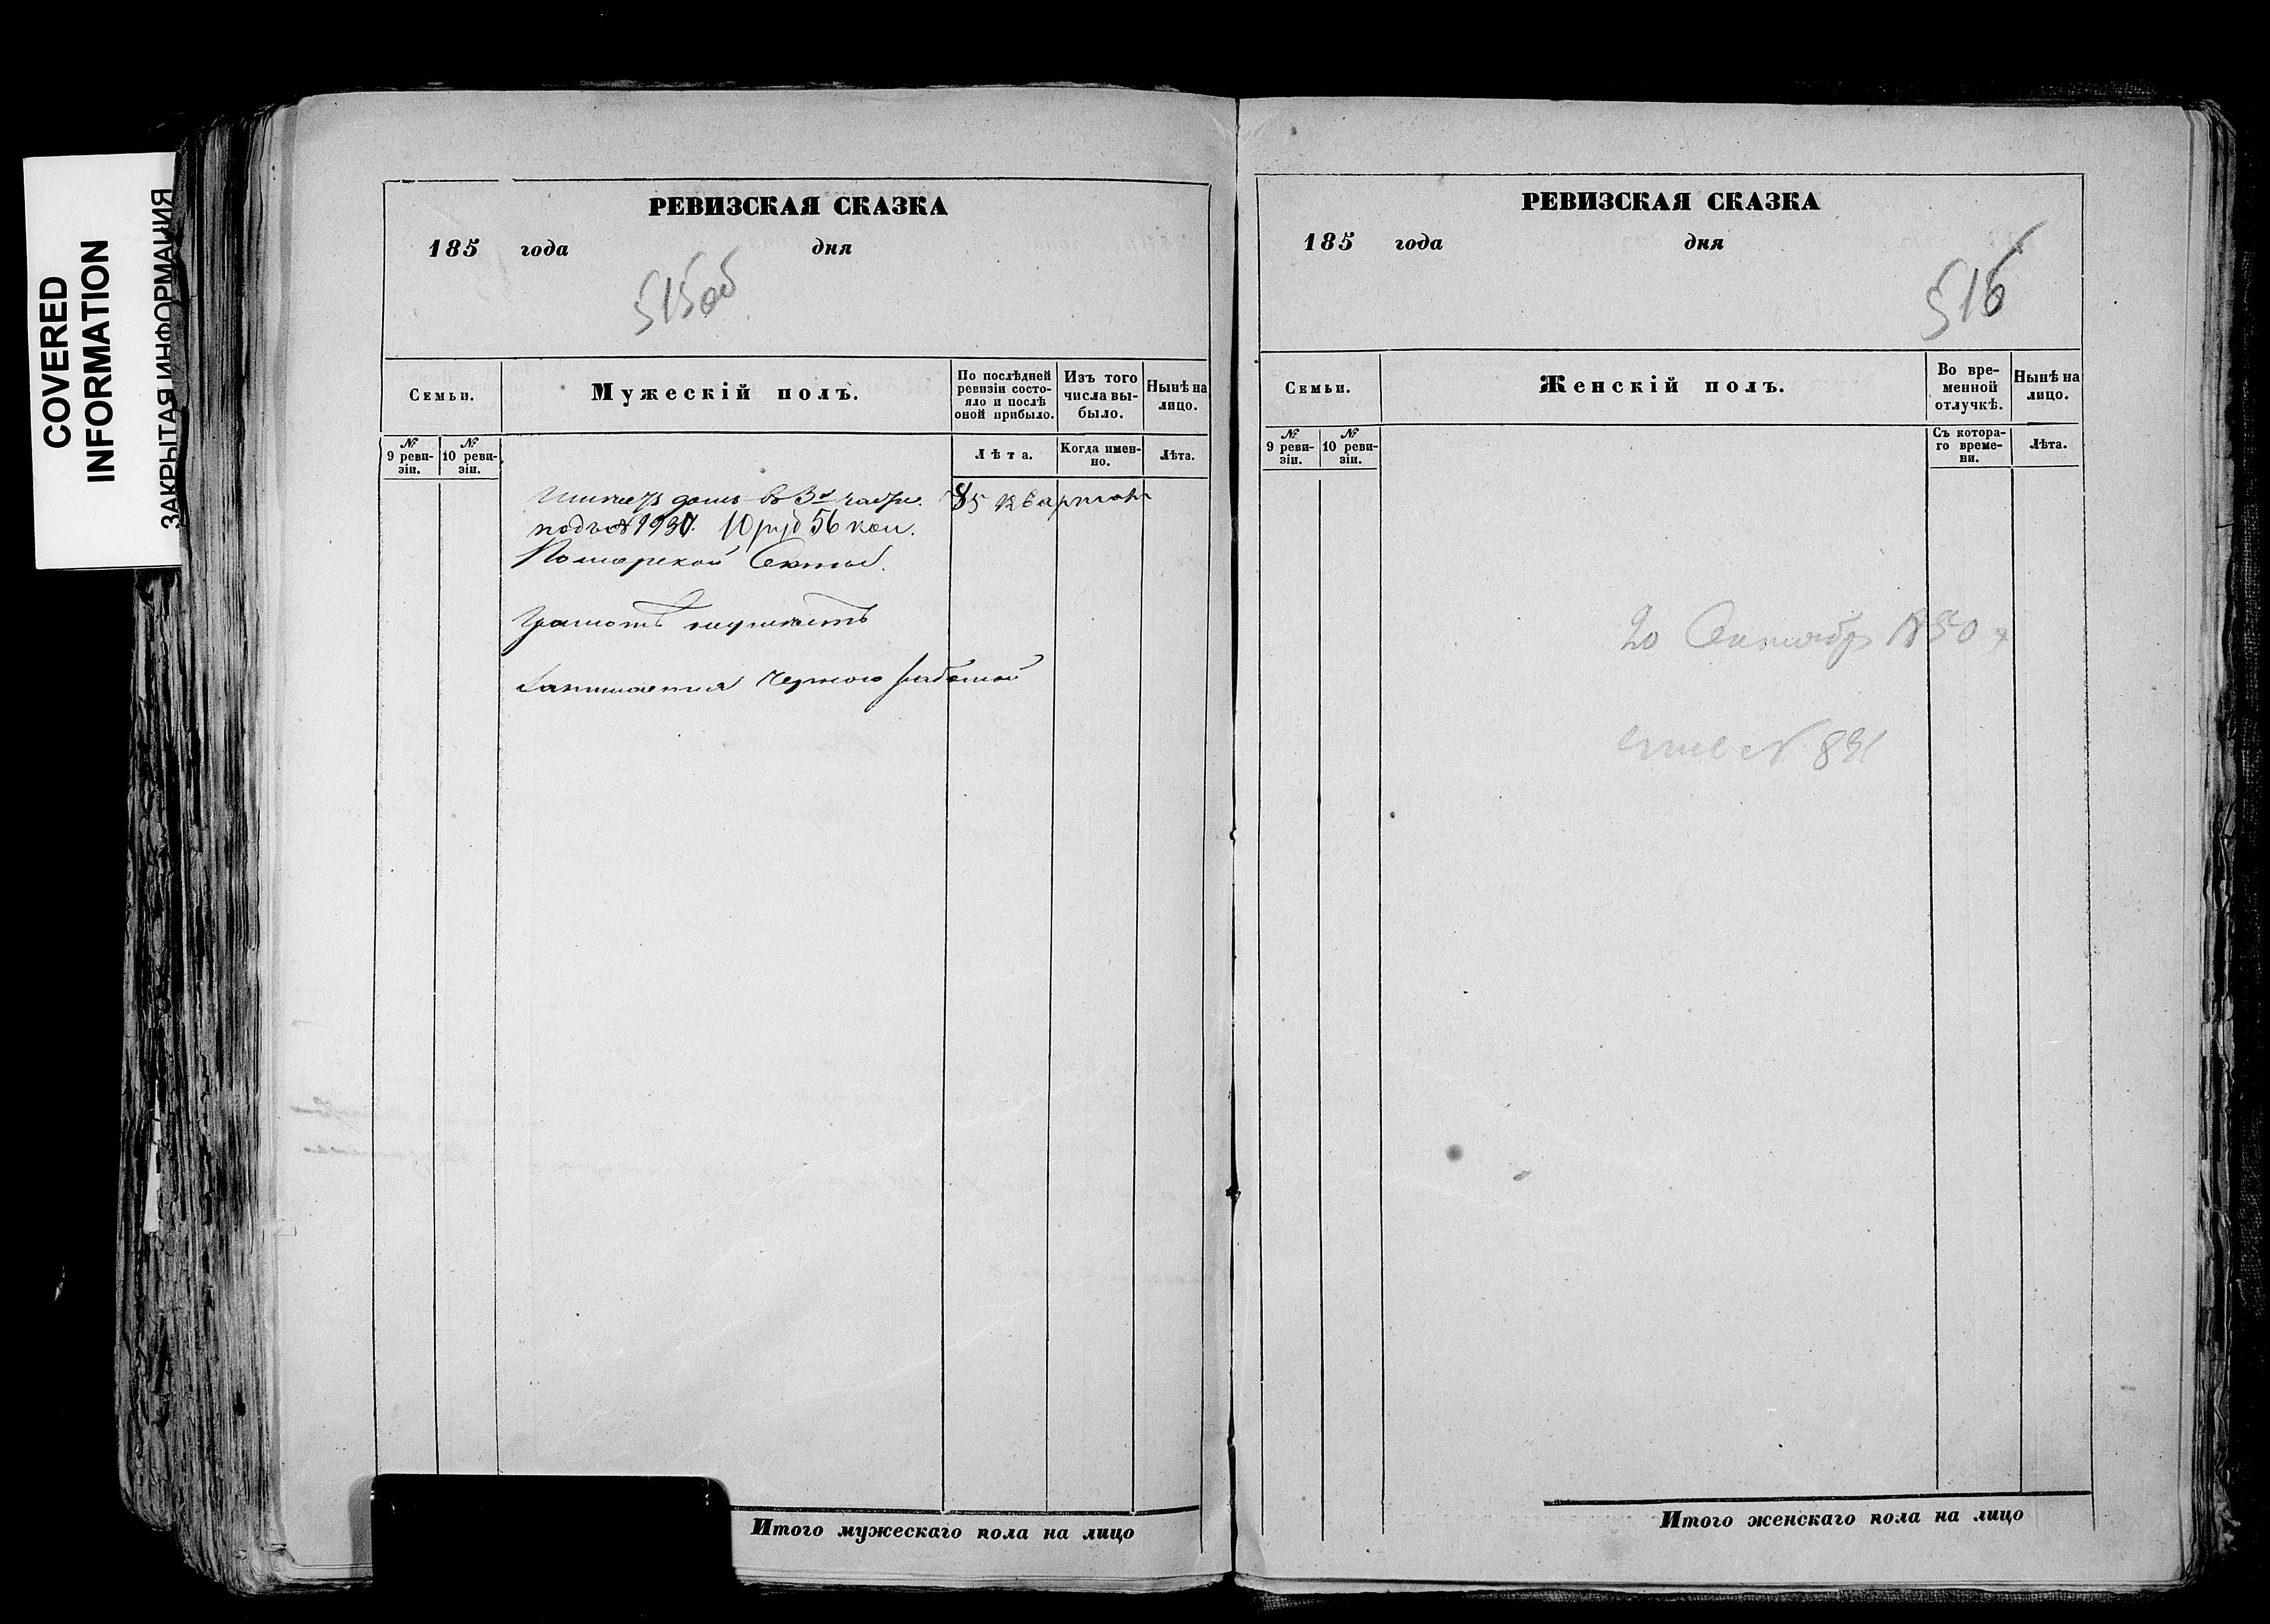 COVERED
INFORMATION
ЗАКРЫТАЯ ИНФОРМАЦИЯ
РЕВИЗСКАЯ СКАЗКА
185 года дня
515об
Семьи.
Мужескій полъ.
По послѣдней ревизіи состояло и послѣ оной прибыло.
Изъ того числа выбыло.
Нынѣ на лицо.
№ 9 ревизіи.
№ 10 ревизіи.
Лѣта.
Когда именно.
Лѣта.
домъ въ 3й части. 85 квартал
подъ № 10 руб 56 коп.
Поморской Секты.
Грамотѣ неумеетъ
Занимается Черною работой
Итого мужескаго пола на лицо
РЕВИЗСКАЯ СКАЗКА
185 года дня
516
Семьи.
Женскій полъ.
Во временной отлучкѣ.
Нынѣ на лицо.
№ 9 ревизіи.
№ 10 ревизіи.
Съ котораго времени.
Лѣта.
20 1850
№ 831
Итого женскаго пола на лицо